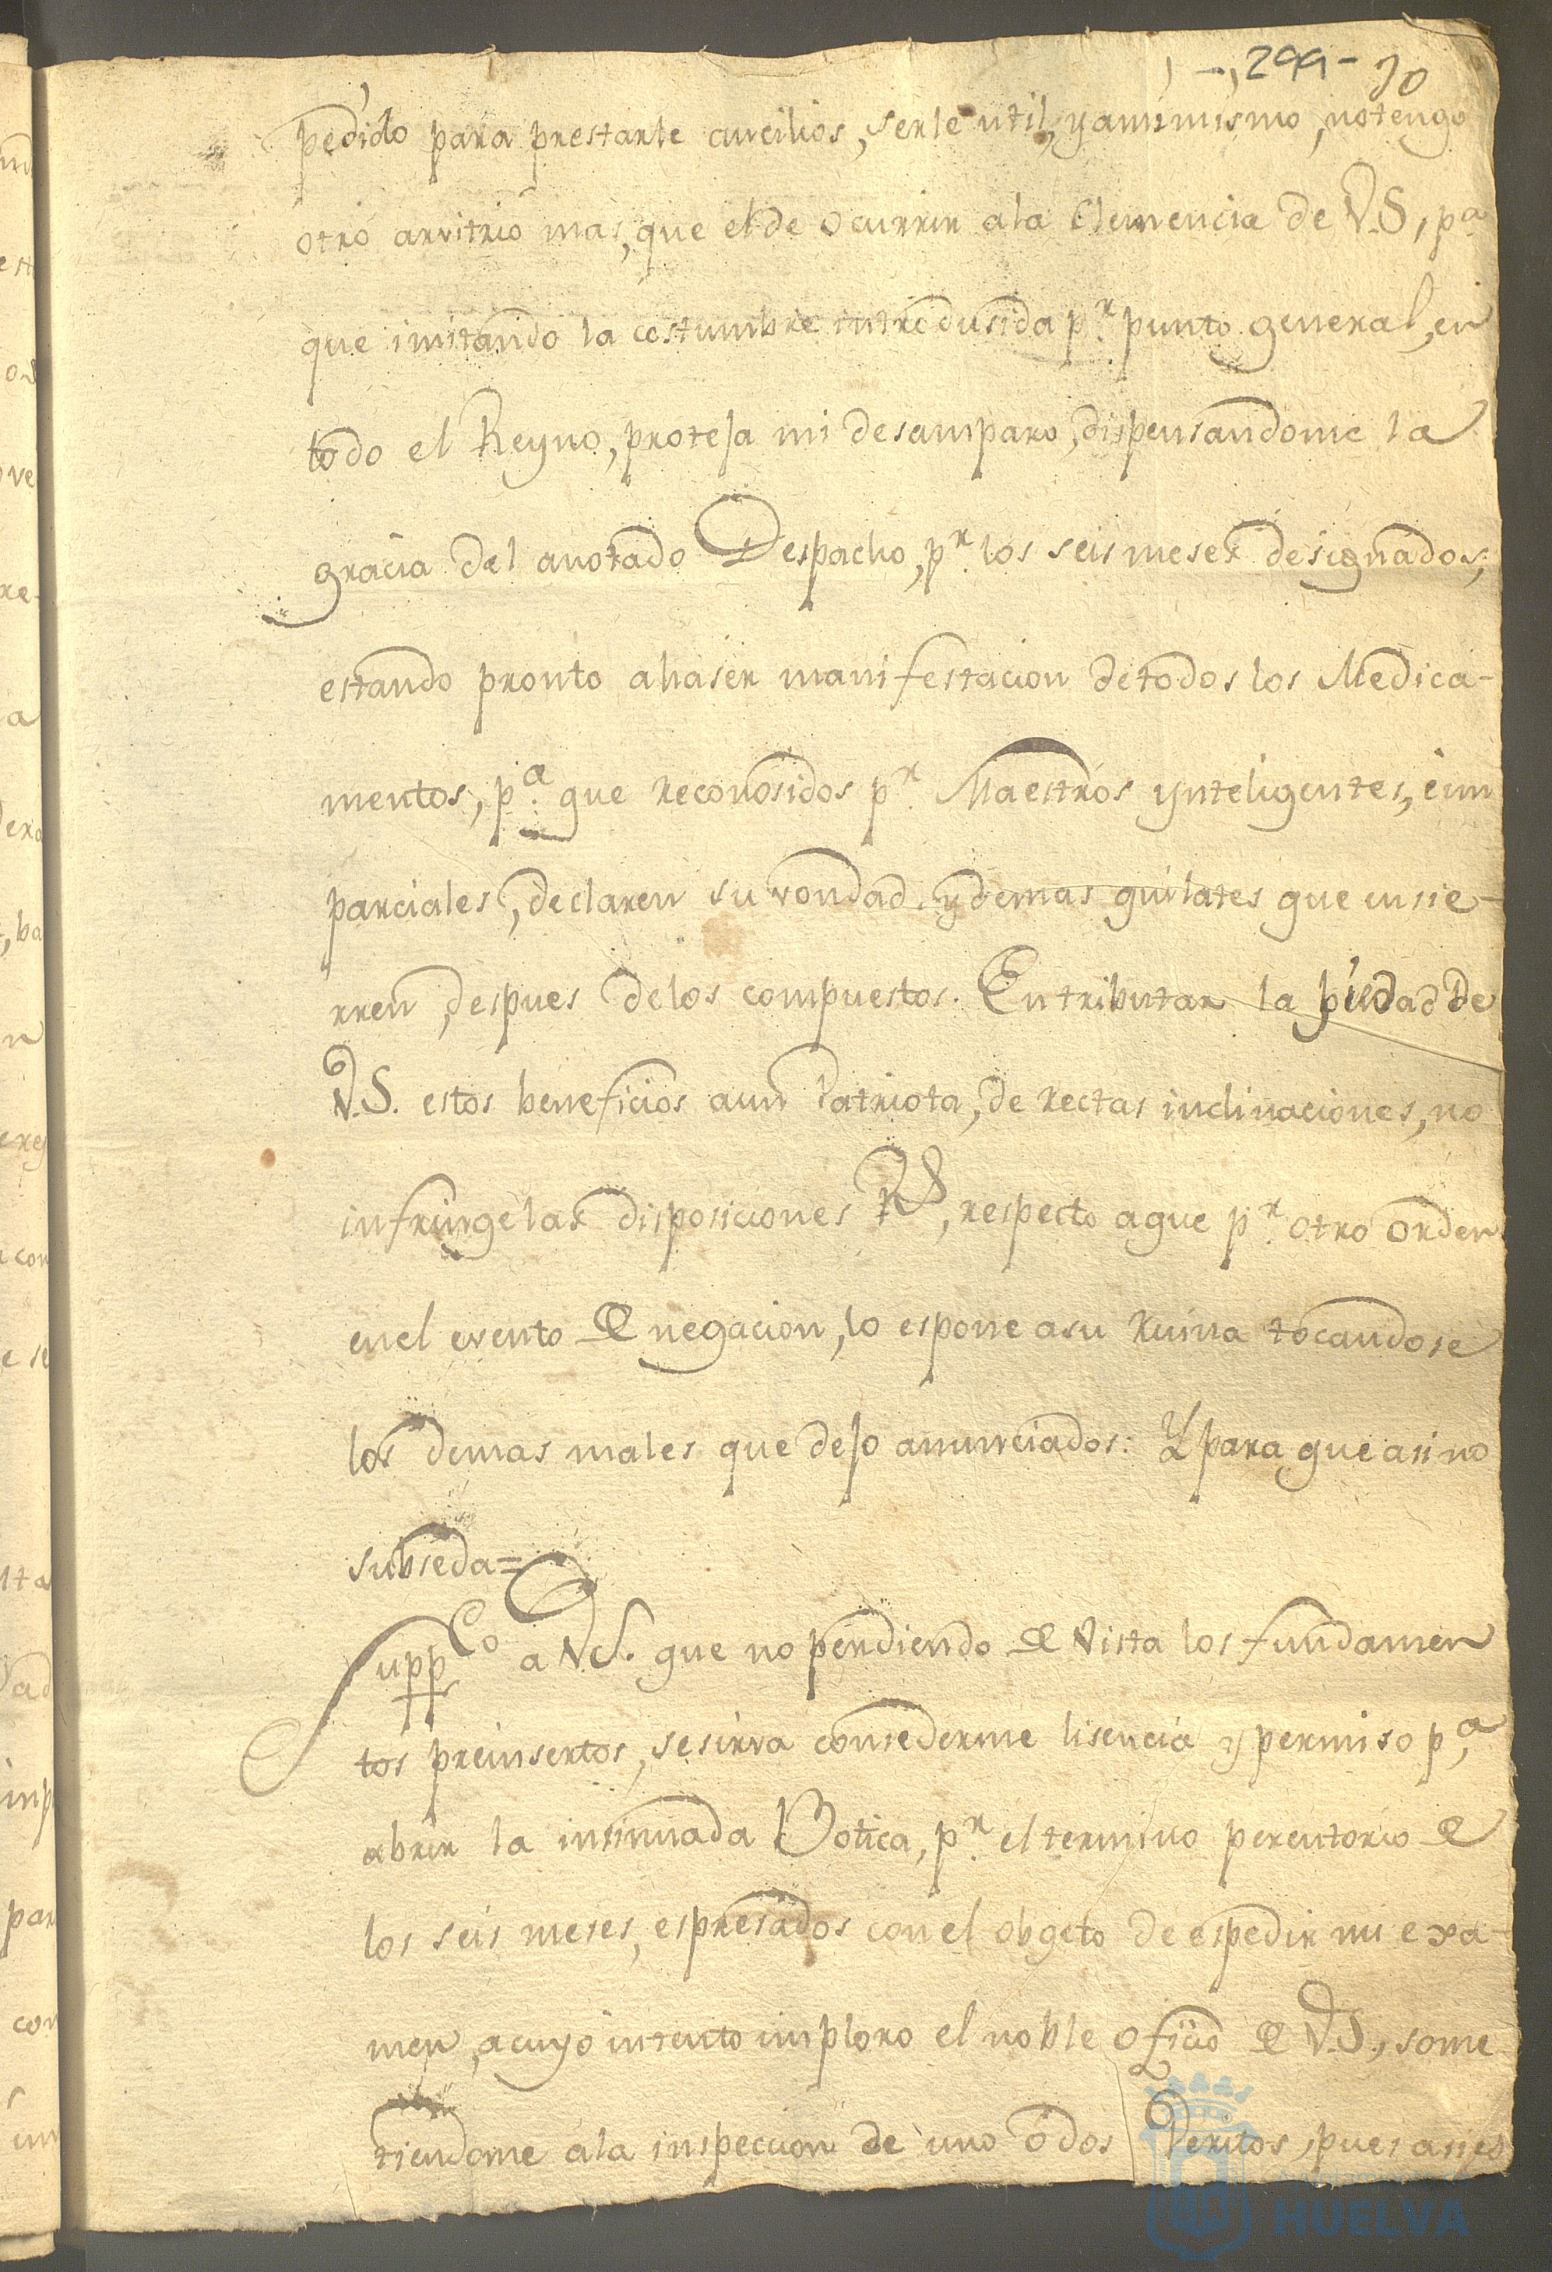 299- 10
pedido para prestarle aucilios, serle util, y amimismo, notengo
otro arvitrio mas, que el de ocurrir ala Clemencia de V.S, pa.
que imitando la costumbre introdusida pr. punto general, en
todo el Reyno, proteja mi desamparo, dispensandome la
gracia del anotado Despacho, pr. los seis meses designados;
estando pronto ahaser manifestacion detodos los Medica-
mentos, pa. que reconosidos pr. Maestros ynteligentes, é im
parciales, declaren su vondad, ydemas quilates que ensie-
rren, despues delos compuestos. En tributar la piedad de
V.S. estos beneficios aun Patriota, de rectas inclinaciones, no
infringe las disposiciones Rs, respecto aque pr. otro orden
enel evento de negacion, lo espone asu ruina tocandose
los demas males que dejo anunciados: Y para que asi no
subseda=
Suppco a VS. que no perdiendo de vista los fundamen
tos preinsertos, sesirva consederme lisencia y permiso pa.
abrir la insinuada Botica, pr. eltermino perentorio de
los seis meses, espresados con el obgeto de espedir mi exa-
men, acuyo intento imploro el noble oficio de V.S., some
tiendome ala inspeccion de uno ó dos Peritos, pues asi es
HUELVA